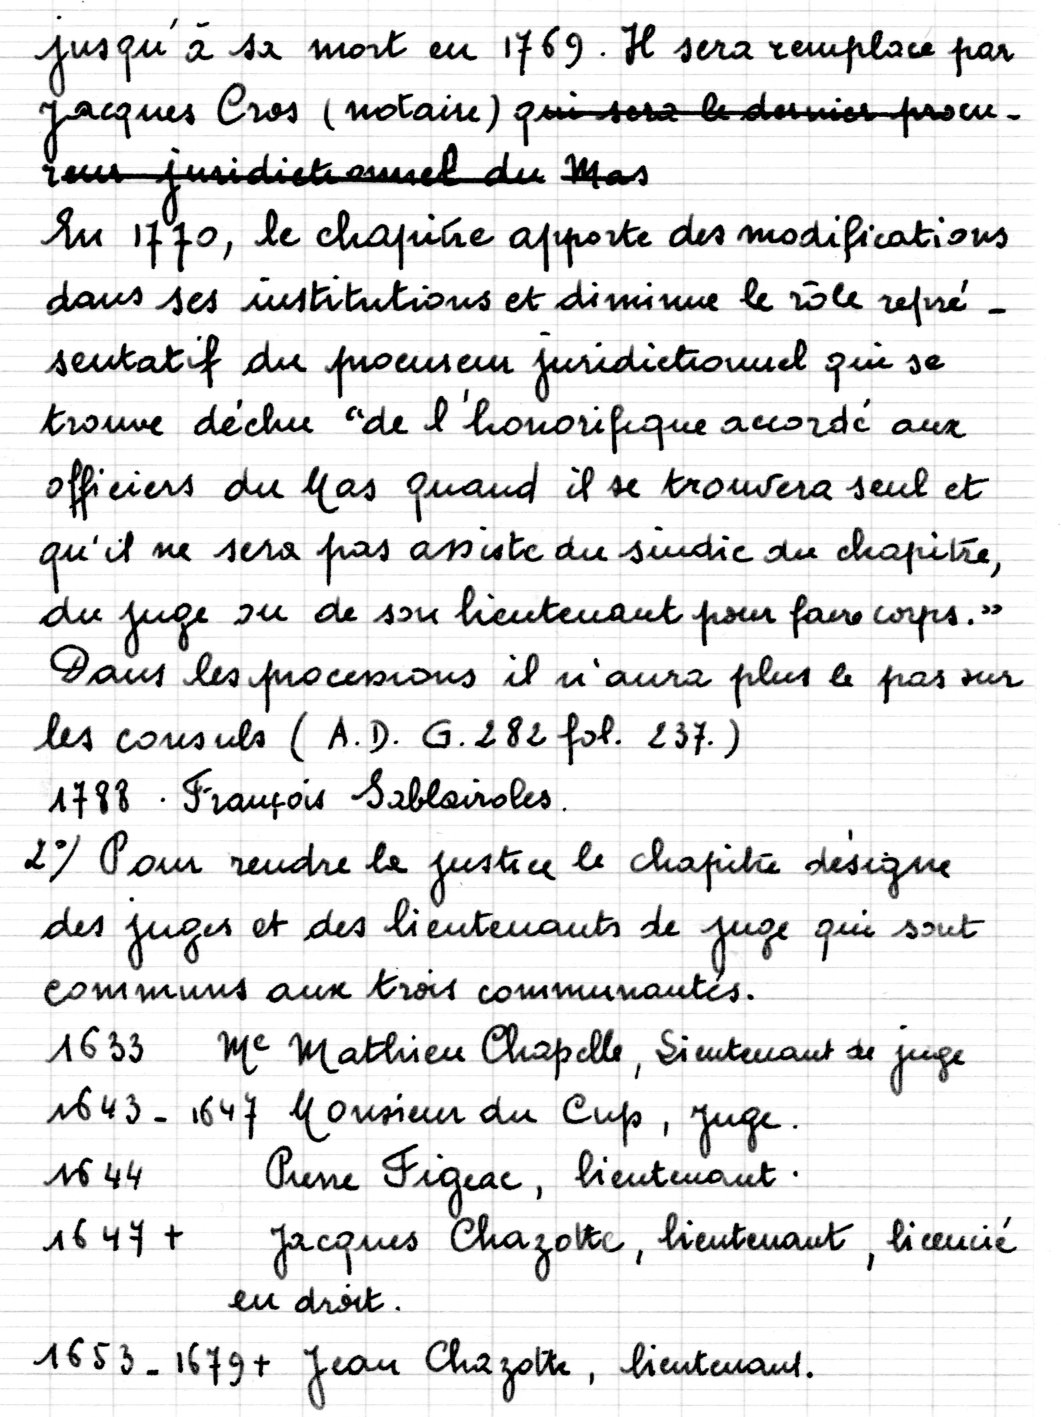 jusqu'à sa mort en 1769. Il sera remplacé par
Jacques Cros (notaire) qui sera le dernier procu-
reur juridictionnel du Mas
En 1770, le chapitre apporte des modifications
dans ses institutions et diminue le rôle repré-
sentatif du procureur juridictionnel qui se
trouve déchu "de l'honorifique accordé aux
officiers du Mas quand il se trouvera seul et
qu'il ne sera pas assisté du sindic du chapitre,
du juge ou de son lieutenant pour faire corps."
Dans les processions il n'aura plus le pas sur
les consuls (A.D. G.282 fol. 237.)
1788 . François Sablairoles.
2°/ Pour rendre la justice le chapitre désigne
des juges et des lieutenants de juge qui sont
communs aux trois communautés.
1633 Me Mathieu Chapelle, Lieutenant de juge
1643-1647 Monsieur du Cup, Juge.
1644 Pierre Figeac, lieutenant.
1647+ Jacques Chazotte, lieutenant, licencié
en droit.
1653-1679+ Jean Chazotte, lieutenant.